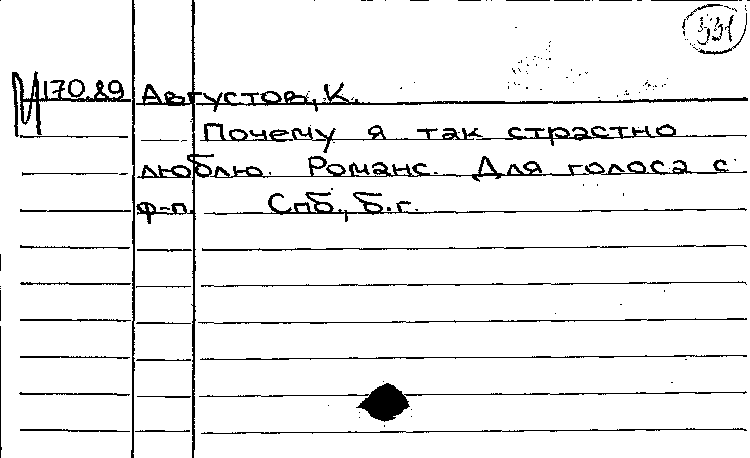 331
И 170.89 Августов, К.
Почему я так страстно
люблю. Романс. Для голоса с
ф-п. Спб., б.г.